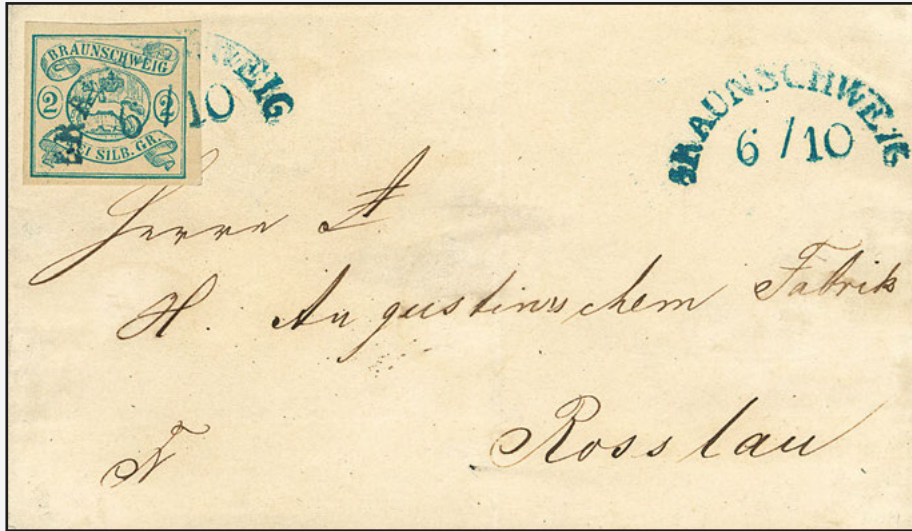 BRAUNSCHWEIG
2 2
EI SILB. GR.
BRA WEIG
6 / 10
BRAUNSCHWEIG
6 / 10
Herrn
H. Augustin'schem Fabrik
Rosslau